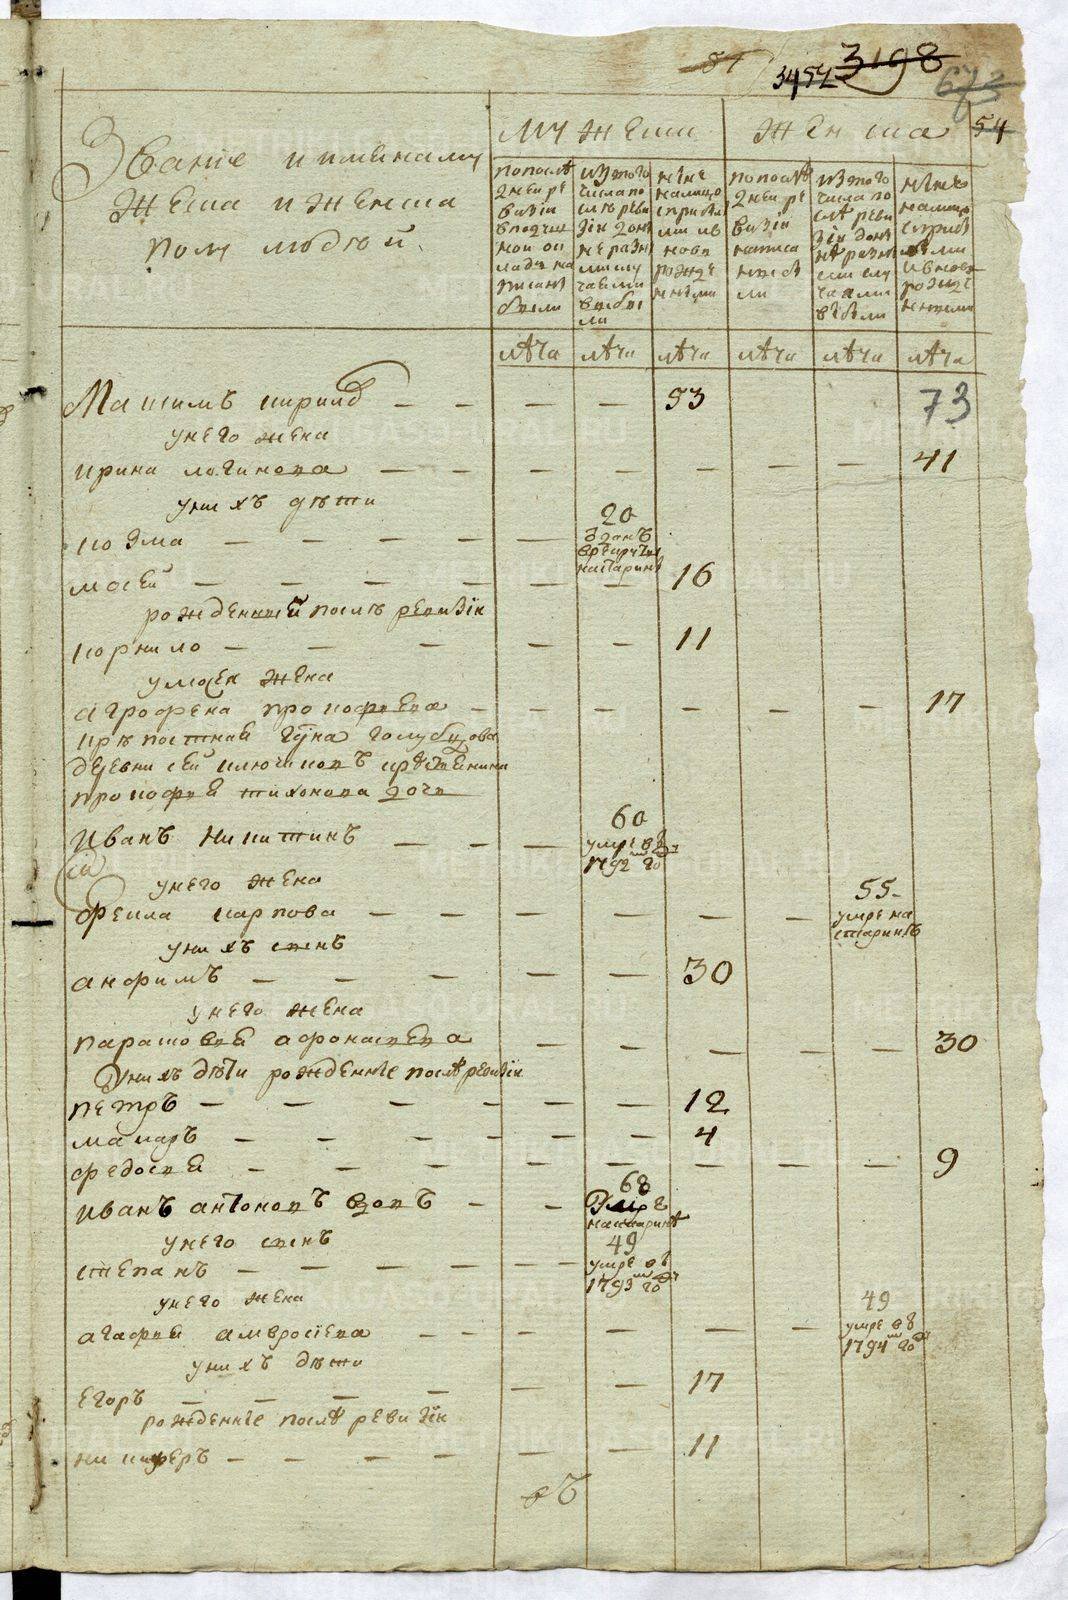 3452 3198
673
54
Звание и имена му
жеска и женска
полу людей
мужеска
женска
по посл
ѣдней ре
визии
в подуш
ной ок
ладъ на
писаны
были
изъ того
числа по
слѣ реви
зіи до нн
нѣ разн
ыми слу
чаями
выбы
ли
ннѣ
налицо
с прибы
лыми и в
новь
рожде
нными
по послѣ
дней ре
визіи
написа
нныя
изъ того
числа по
слѣ реви
зіи до нн
нѣ разн
ыми слу
чаями
выбыли
ннѣ
налицо
с прибы
лыми
и вновь
рожде
нными
лѣта лѣта лѣта лѣта лѣта лѣта
73
Максимъ кирилов 53
у него жена
ирина логинова 41
у нихъ дѣти
козма 20
отданъ
в рекруты
на старинѣ
мосей 16
рожденный послѣ ревизіи
корнило 11
у мосея жена
аграфена прокофьева 17
крѣпостная гдна голубцова
деревни сей ключиковъ крестьянина
прокофья тихонова дочь
иванъ никитинъ 60
умре въ
1792 м году
у него жена
фекла карпова 55
умре на
старинѣ
у нихъ сынъ
анфимъ 30
у него жена
парасковья афонасьева 30
у нихъ дѣти рожденные послѣ ревизіи
петръ 12
макаръ 4
федосья 9
иванъ антоновъ вдовъ 68
умре
на старинѣ
у него сынъ
степанъ 49
умре въ
1793 м году
у него жена
агафья амвросіева 49
умре въ
1794 м году
у нихъ дѣти
егоръ 17
рожденные послѣ ревизіи
никиферъ 11
въ